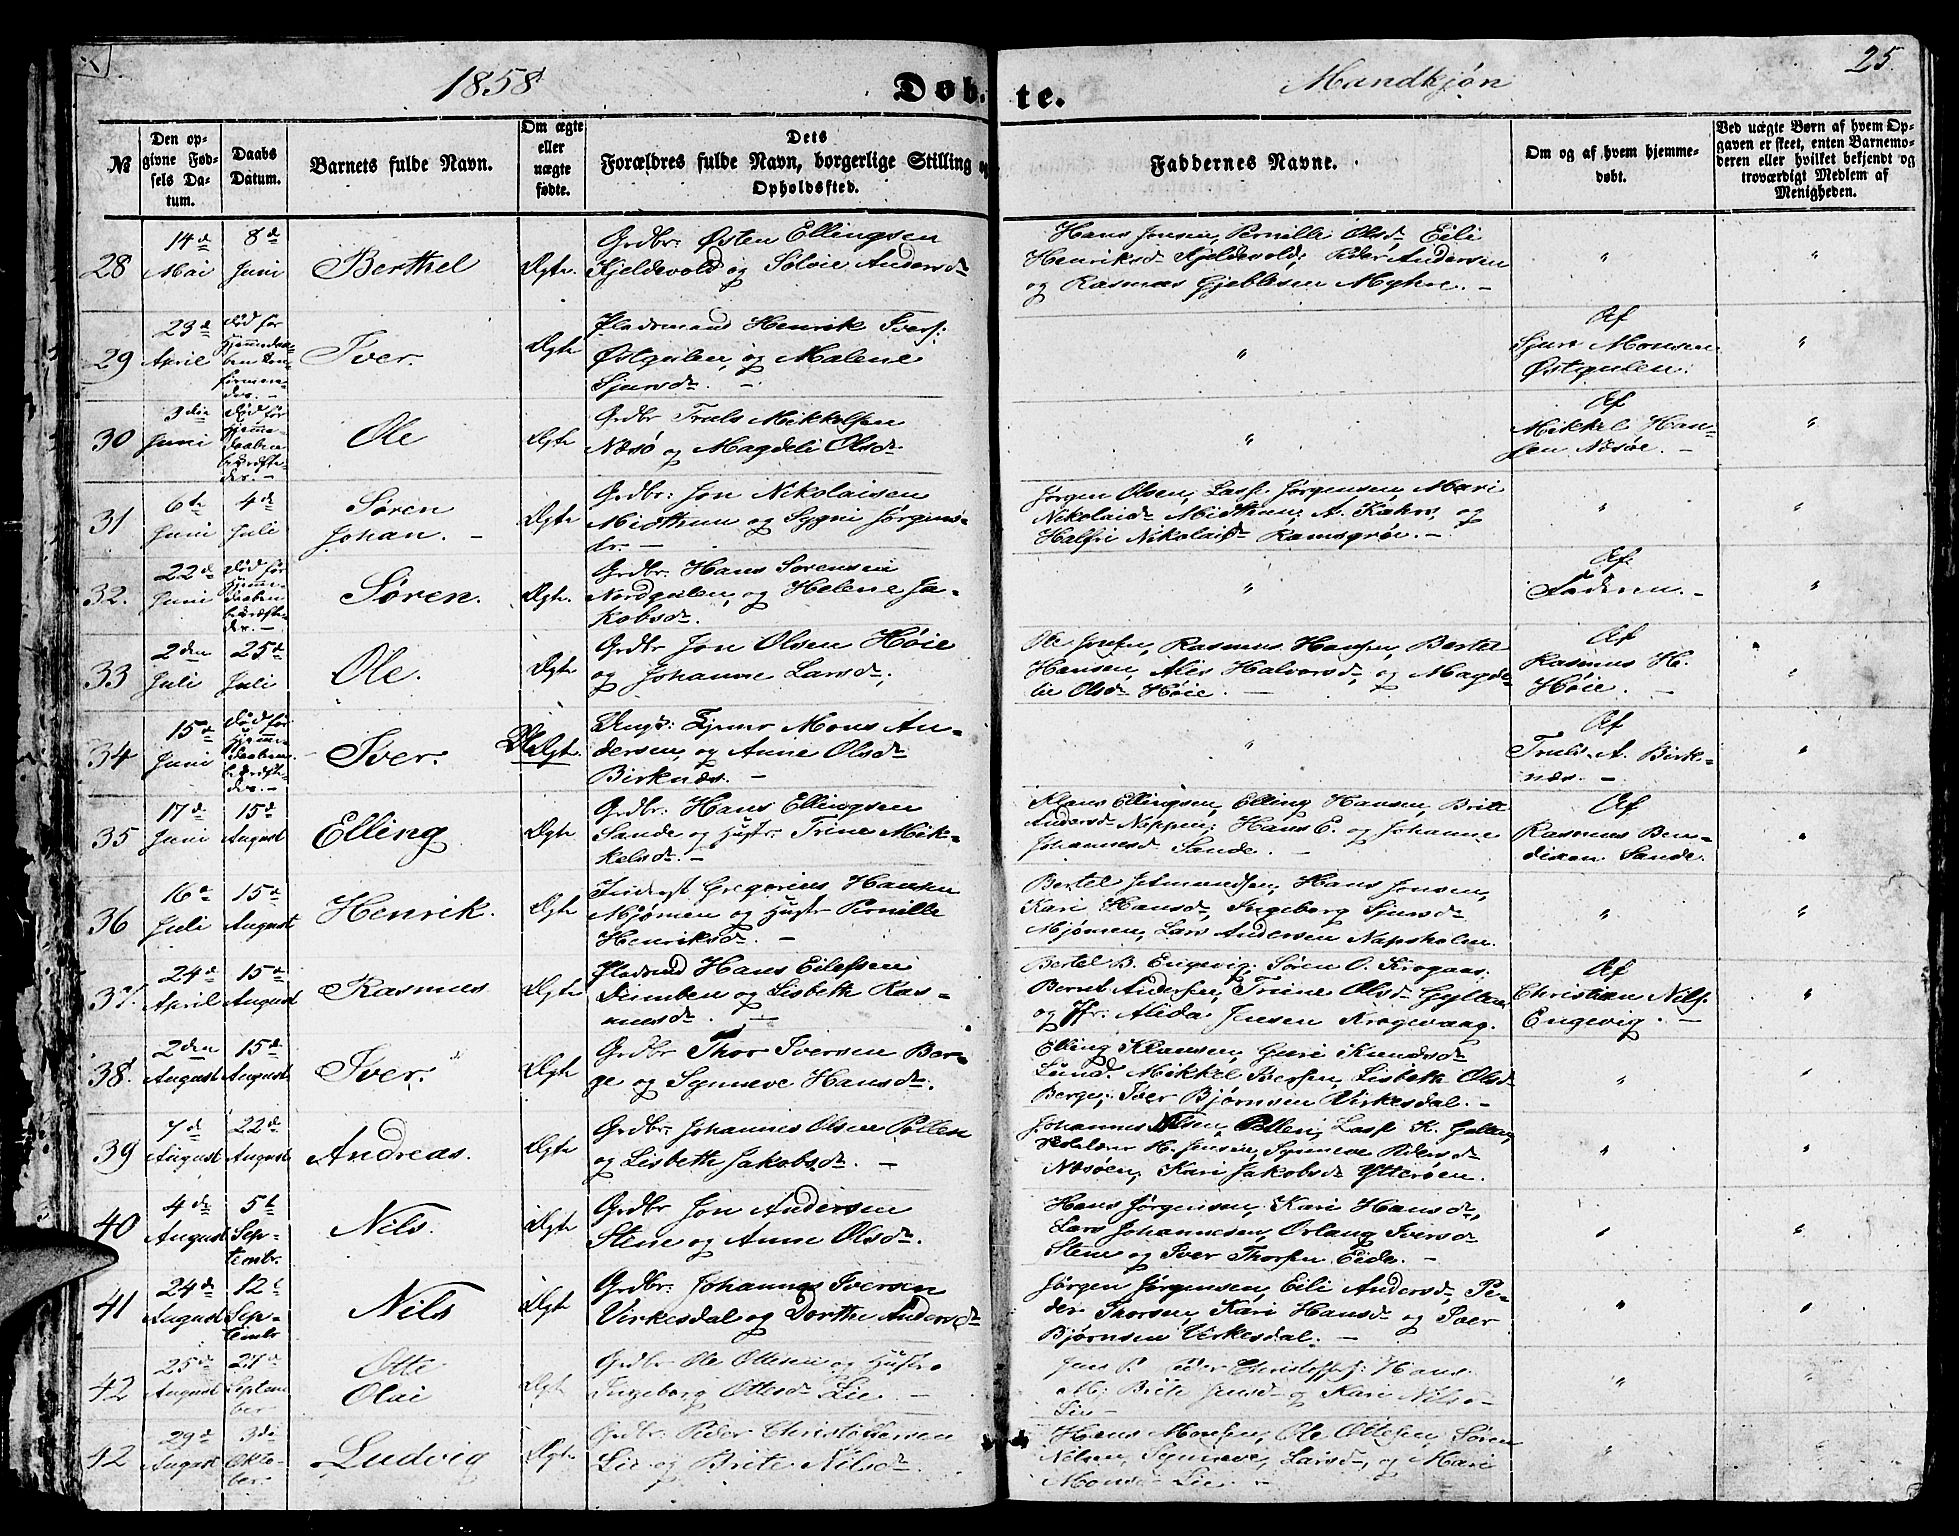 25.
1858
Døb-te.
Mandkjøn
№
Den op-
givne Fød-
sels Da-
tum.
Daabs
Datum.
Barnets fulde Navn.
Om ægte
eller
uægte
fødte.
Dets
Forældres fulde Navn, borgerlige Stilling og
Opholdssted.
Faddernes Navne.
Om og af hvem hjemme-
døbt.
Ved uægte Børn af hvem Op-
gaven er skeet, enten Barnemo-
deren eller hvilket bekjendt og
troværdigt Medlem af
Menigheden.
28
14de
Mai
8de
Juni
Berthel
Ægte.
Grdbr: Østen Ellingsen
Kjeldevold og Anders dr
Hans Jonsen, Pernille Olsdr Eili
Henriksdr Kjeldevold, Peder Andersen
og Rasmus Gjeblesen Myhre. -
"
"
29
23de
April
død før
Hjemmedaa-
ben
Iver.
Ægte
Pladsmand Henrik Ivers:
Østgulen, og Malene
Sjursdr. -
"
Af
Sjur Monsen
Østgulen.
"
30
3die
Juni
død før
Hjemme-
daaben
bekræfte-
des. -
Ole
Ægte
Grdbr Truls Mikkelsen
Nøsø og Magdeli Olsdr
"
Af
Mikkel Han-
sen Nøsøe. -
"
31
6te
Juni
4de
Juli
Søren
Johan. -
Ægte
Grdbr: Jon Nikolaisen
Midttun og Sygni Jørgens-
dr. -
Jørgen Olsen, Lasse Jørgensen, Mari
Nikolaisdr Midttun, A. Kahrs, og
Nikolaisdr Ramsgrøe. -
"
"
32.
22de
Juni
død før
Hjemme-
daaben
bekræfte-
des. -
Søren.
Ægte.
Grdbr: Hans Sørensen
Nordgulen, og Helene Ja-
kobsdr.
"
Af
Faderen. -
"
33
2den
Juli
25de
Juli
Ole.
Ægte
Grdbr Jon Olsen Høie
og Johanne Larsdr,
Ole Josefsen, Rasmus Hansen, Bertel
Hansen, Alis Halvorsdr, og Magde-
lie Olsdr Høie. -
Af
Rasmus H.
Høie. -
"
34
15de
Juni
død før
Hjemme-
daaben
bekræfte-
des. -
Iver.
Uægte.
Ungk: Mons An-
dersen, og Anne Olsdr
Birknæs. -
"
Af
Truls A. Birk-
næs. -
"
35
17de
Juni
15de
August
Elling
Ægte
Grdbr: Hans Ellingsen
Sande og Hustr. Trine Mik-
kelsdr. -
Klaus Ellingsen, Elling Hansen, Brite
Andersdr Nappen; Hans E. og Johanne
Johannesdr Sande. -
Af
Rasmus Ben-
dixen Sande.
"
36
16de
Juli
15de
August
Henrik.
Ægte
Inderst Gregorius Hansen
Mjømen og Hustr Pernille
Henriksdr. -
Bertel Hans Jonsen,
Kari Hansdr, Ingeborg Sjursdr
Mjømen, Lars Andersen Napsholm.
"
"
37.
24de
April
15de
August
Rasmus
Ægte
Pladsmd Hans Eilefsen
og Lisbeth Ras-
musdr. -
Bertel B. Engevig, Søren O. Krogaas,
Bernt Andersen, Trine Olsdr Gylten,
og Jfr. Alida Jensen Krogevaag.
Af
Christian Nils.
Engevig. -
"
38.
2den
August
15de
August
Iver.
Ægte
Grdbr Thor Iversen Ber-
ge og Synneve Hansdr.
Elling Klausen, Guri Knudsdr
Lund. Mikkel Iversen, Lisbeth Olsd
Berge, Iver Bjørnsen Virkesdal. -
"
"
39
7de
August
22de
August
Andreas.
Ægte
Grdbr: Johannes Olsen Pollen
og Lisbeth Jakobsdr. -
Johannes Nilsen, Pollen, Lasse K.
H. Jensen, Synneve Pedersdr
Nøsøen, Kari Jakobsdr Ytterøen.
"
"
40
4de
August
5te
Sep-
tembr.
Nels.
Ægte
Grdbr Jon Andersen
Stene og Anne Olsdr.
Hans Jørgensen, Kari Hansdr,
Lars Johannesen, Ørlaug Iversdr
Stene og Iver Thorsen Eide. -
"
"
41
24de
August
12te
Sep-
tembr
Nils
Ægte
Grdbr: Johannes Iversen
Virkesdal og Dorthe Andersdr
Jørgen Jørgensen, Eili Andersdr, Pe-
der Thorsen, Kari Hansdr og Iver
Bjørnsen Virkesdal. -
"
"
42
25de
August
27de
Septem-
ber
Otte
Olai
Ægte
Grdbr Ole Ottesen og Hustro
Ingeborg Ottesdr Lie. -
Jens P. Peder Christoffers: Hans
M: Brite Jensdr og Kari Nilsd
Lie -
"
"
42
29de
August
3die
Okto-
ber.
Ludvig
Ægte
Grdbr: Peder Christoffersen
Lie og Brite Nilsdr.
Hans Monsen, Ole Ottesen, Søren
Nilsen, Synneve, Larsdr, og Mari
Monsdr Lie. -
"
"